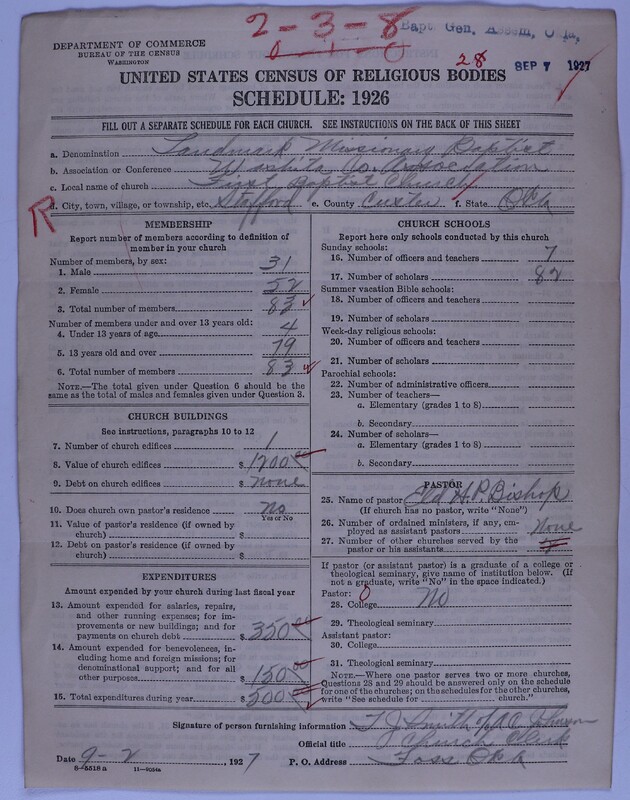 2-3-8
0 1 0
Bapt Gen. Assem, Okla,
DEPARTMENT OF COMMERCE
BUREAU OF THE CENSUS
WASHINGTON
28
SEP 7 1927
UNITED STATES CENSUS OF RELIGIOUS BODIES
SCHEDULE: 1926
FILL OUT A SEPARATE SCHEDULE FOR EACH CHURCH. SEE INSTRUCTIONS ON THE BACK OF THIS SHEET
a. Denomination Landmark Missionary Baptist
b. Association or Conference Washita Co. Association
c. Local name of church First Baptist Church
R
d. City, town, village, or township, etc. Stafford e. County Custer f. State Okla
MEMBERSHIP
Report number of members according to definition of
member in your church
Number of members, by sex:
1. Male 31
2. Female 52
3. Total number of members 83
Number of members under and over 13 years old:
4. Under 13 years of age 4
5. 13 years old and over 79
6. Total number of members 83
NOTE.—The total given under Question 6 should be
same as the total of males and females given under Question 3.
CHURCH BUILDINGS
See instructions, paragraphs 10 to 12
7. Number of church edifices 1
8. Value of church edifices $ 1200
9. Debt on church edifices $ None
10. Does church own pastor's residence No
Yes or No
11. Value of pastor's residence (if owned by
church) $
12. Debt on pastor's residence (if owned by
church) $
EXPENDITURES
Amount expended by your church during last fiscal year
13. Amount expended for salaries, repairs,
and other running expenses; for im-
provements or new buildings; and for
payments on church debt $ 350
14. Amount expended for benevolences, in-
cluding home and foreign missions; for
denominational support; and for all
other purposes $ 150
15. Total expenditures during year $ 500
CHURCH SCHOOLS
Report here only schools conducted by this church
Sunday schools:
16. Number of officers and teachers 7
17. Number of scholars 82
Summer vacation Bible schools:
18. Number of officers and teachers
19. Number of scholars
Week-day religious schools:
20. Number of officers and teachers
21. Number of scholars
Parochial schools:
22. Number of administrative officers
23. Number of teachers—
a. Elementary (grades 1 to 8)
b. Secondary
24. Number of scholars—
a. Elementary (grades 1 to 8)
b. Secondary
PASTOR
25. Name of pastor Eld H.P. Bishop
(If church has no pastor, write "None")
26. Number of ordained ministers, if any, em-
ployed as assistant pastors None
27. Number of other churches served by the
pastor or his assistants
If pastor (or assistant pastor) is a graduate of a college or
theological seminary, give name of institution below. (If
not a graduate, write "No" in the space indicated.)
Pastor: 0
28. College No
29. Theological seminary
Assistant pastor:
30. College
31. Theological seminary
NOTE.—Where one pastor serves two or more churches,
Questions 28 and 29 should be answered only on the schedule
for one of the churches; on the schedules for the other churches,
write "See schedule for church."
Signature of person furnishing information T J Smith
Official title Church Clerk
Date 9-2, 1927 P. O. Address Foss Okla
8-5518a 11-9034a